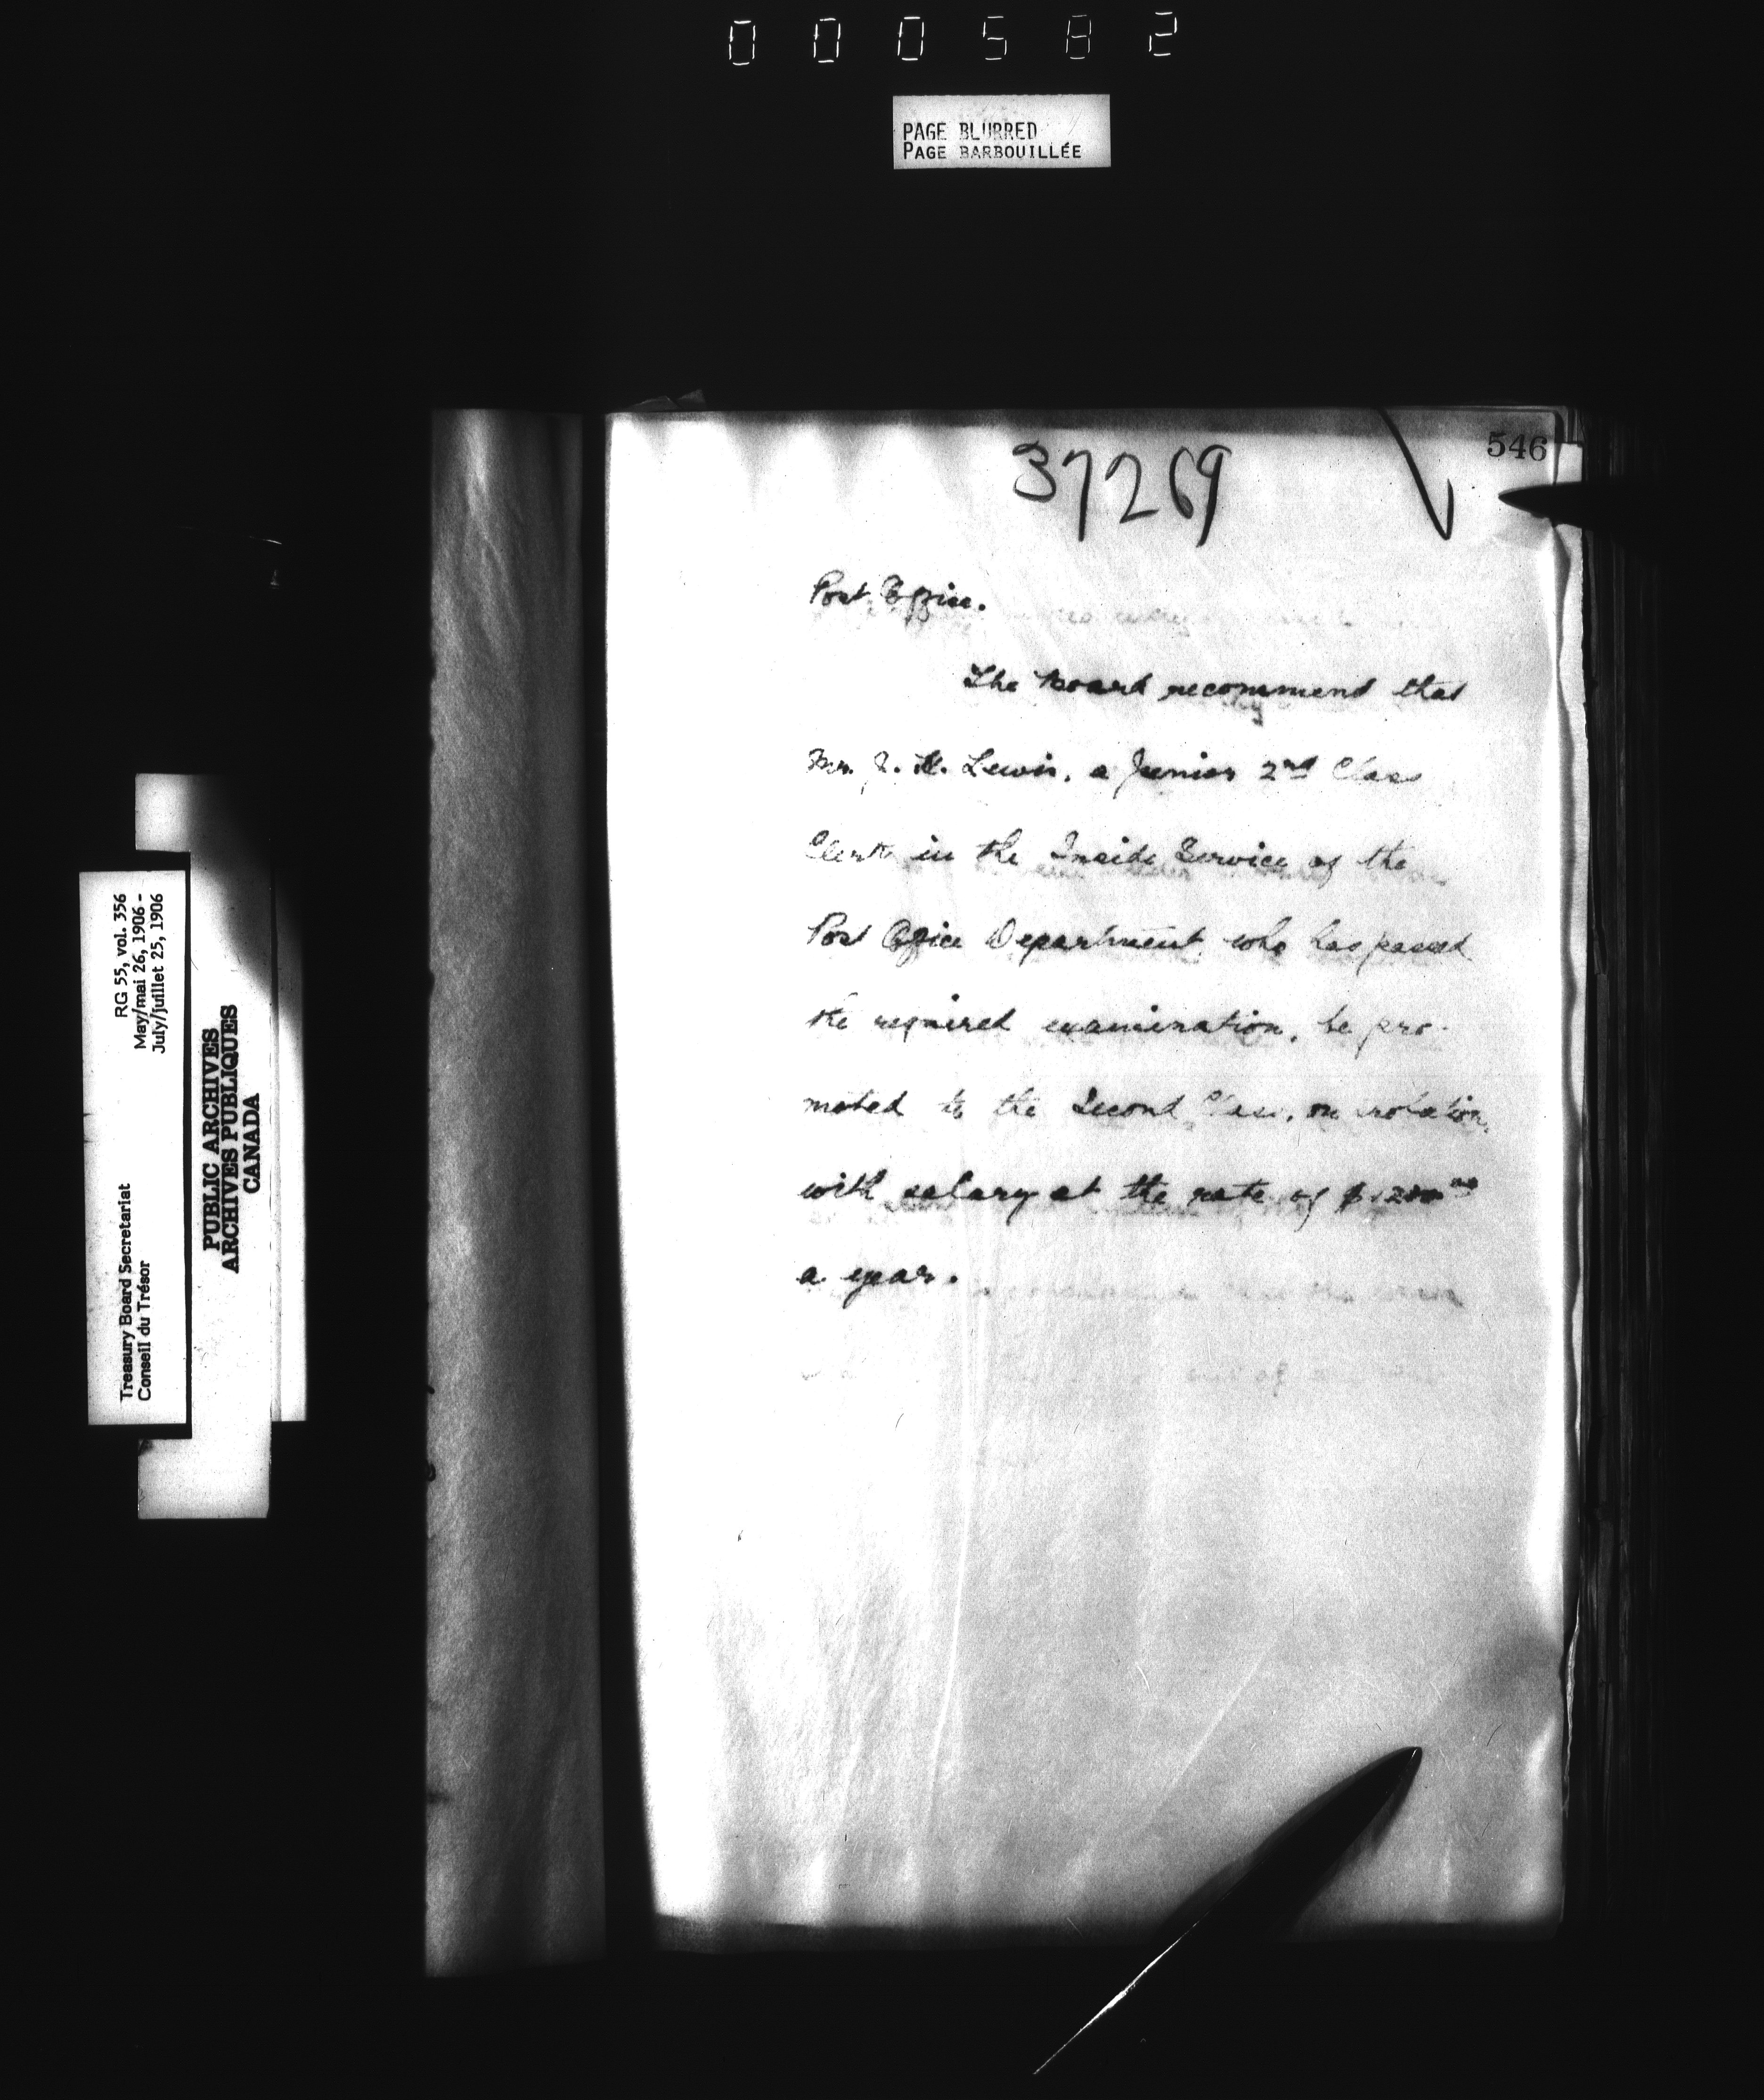 000582
PAGE BLURRED
PAGE BARBOUILLÉE
546
37269
Post Office.
The Board recommend that
Mr. J. H. Lewis, a Junior 2nd Class
Clerk in the Inside Service of the
Post Office Department who has passed
the required examination, be pro-
moted to the Second Class, on probation,
with salary at the rate of $1200
a year.
RG 55, vol. 356
May/mai 26, 1906 -
July/juillet 25, 1906
Treasury Board Secretariat
Conseil du Trésor
PUBLIC ARCHIVES
ARCHIVES PUBLIQUES
CANADA